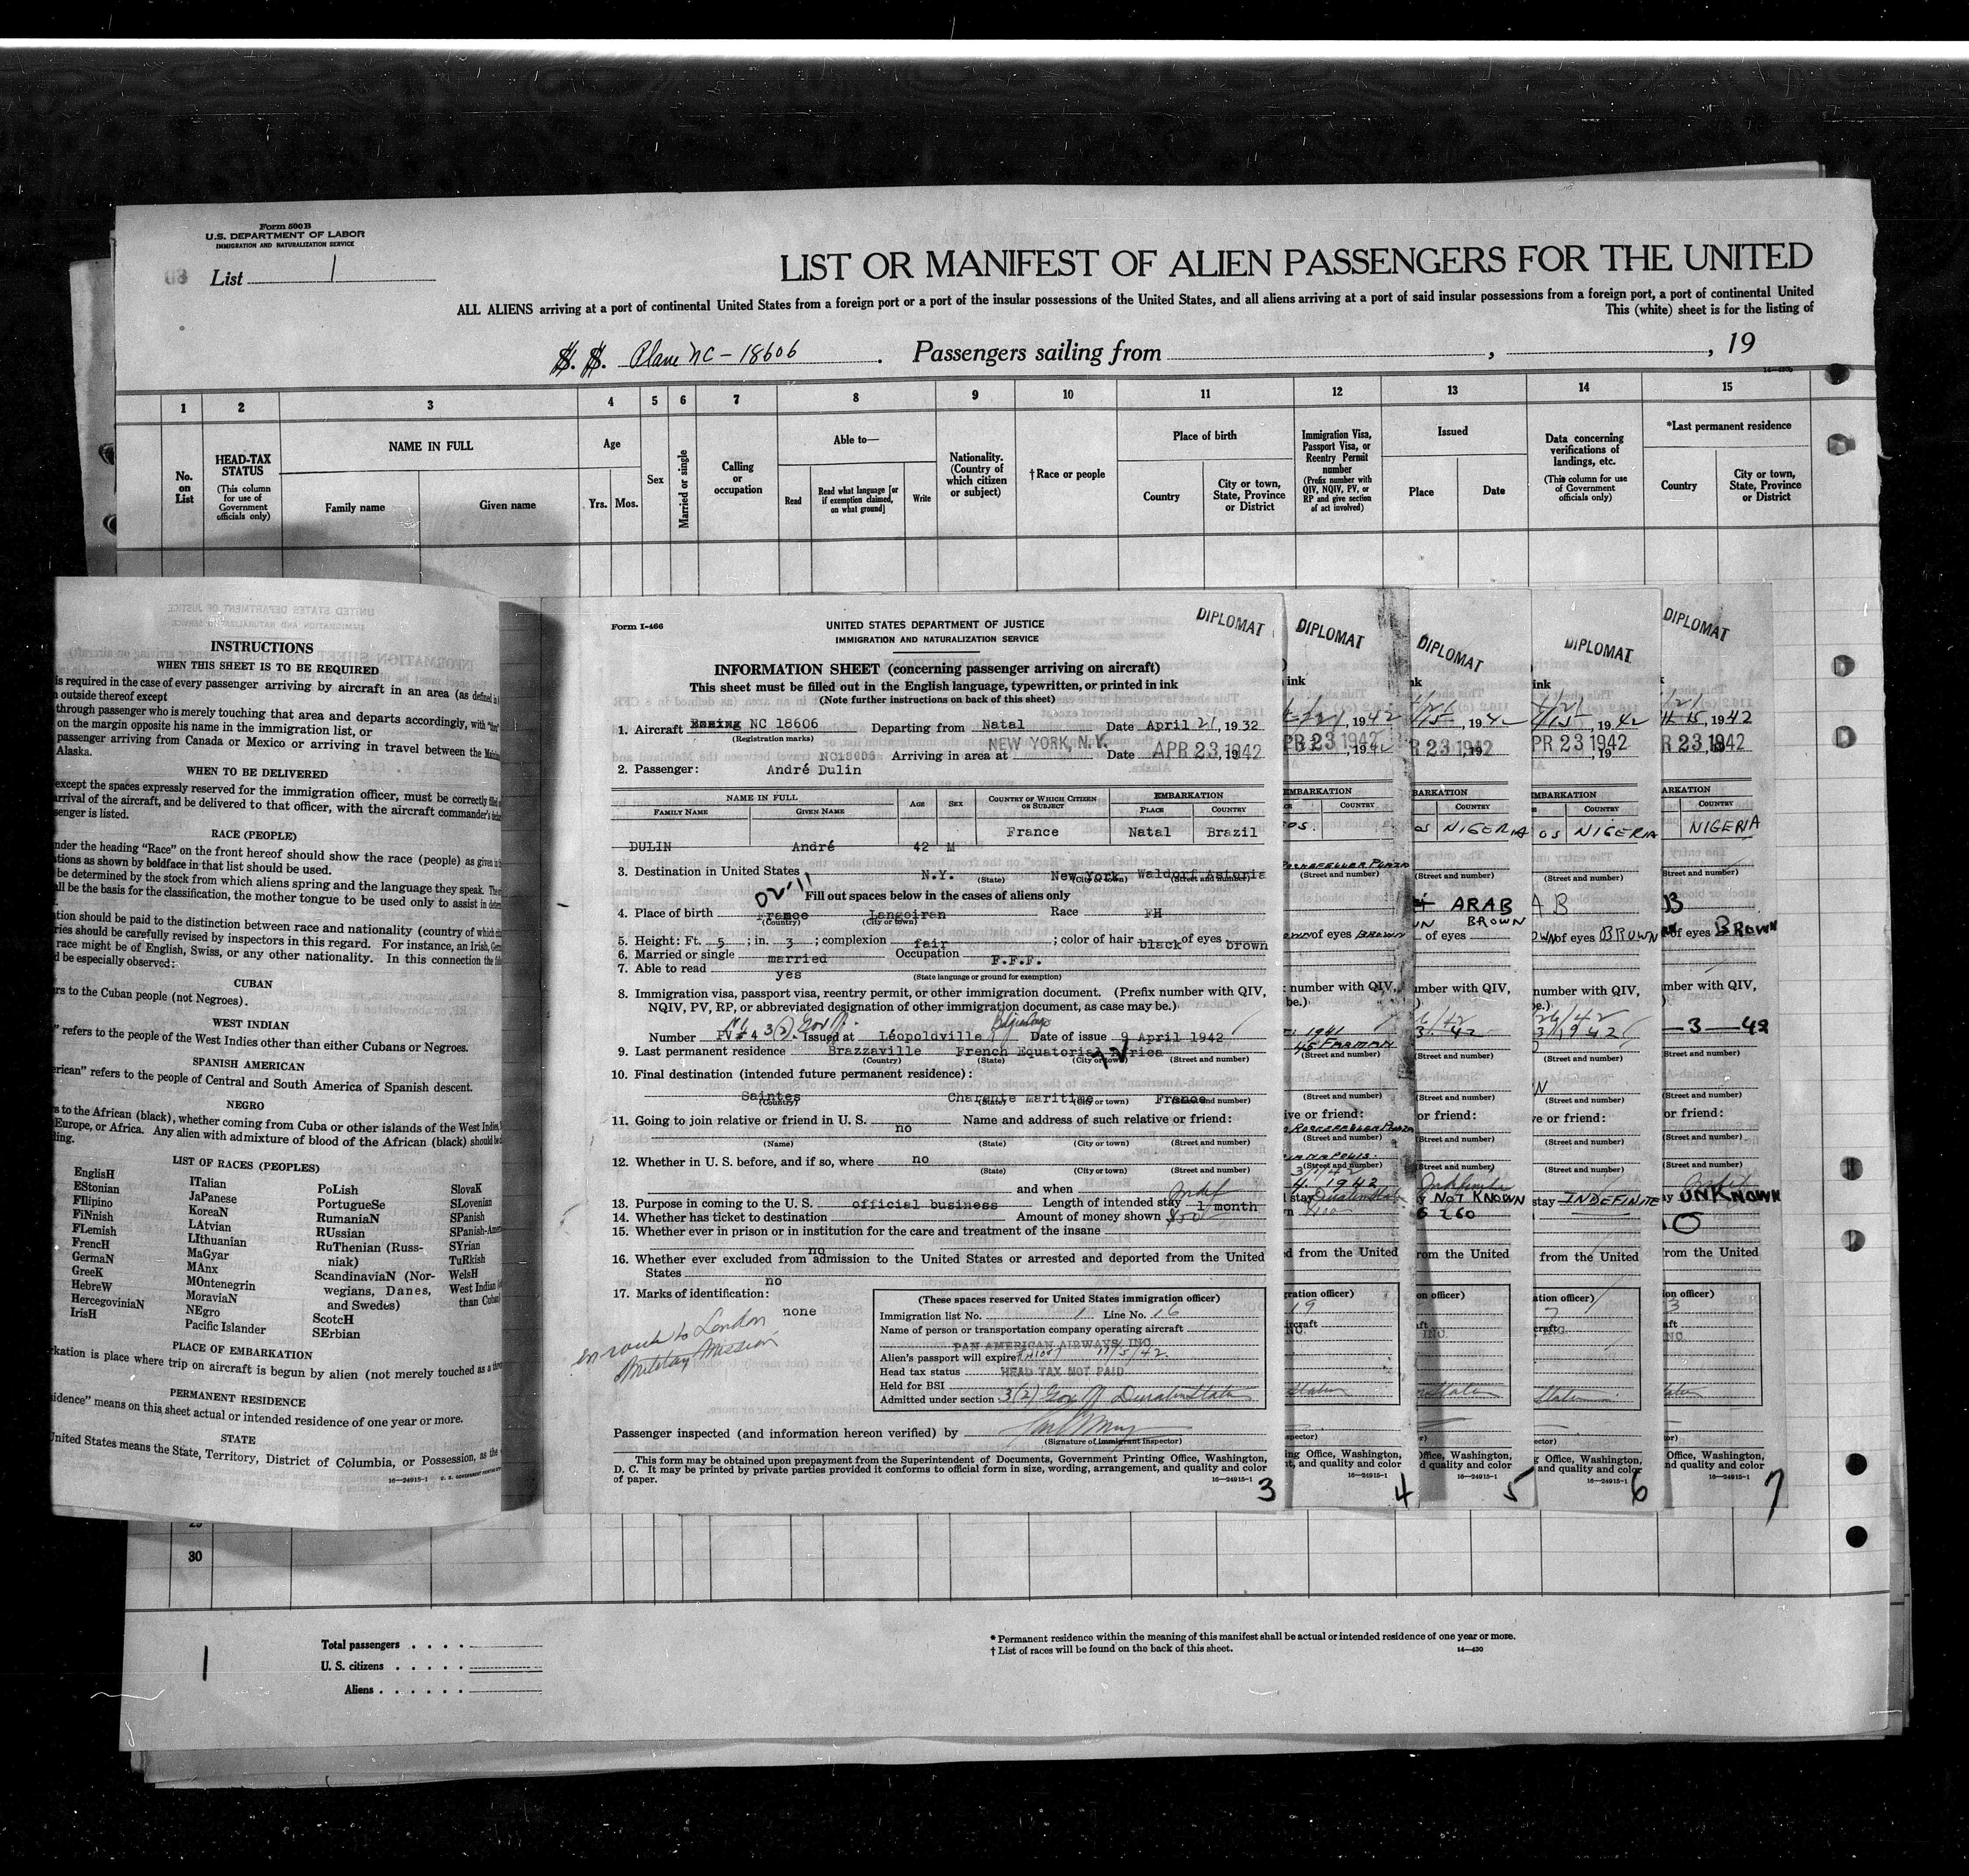 Form 500 B
U.S. DEPARTMENT OF LABOR
IMMIGRATION AND NATURALIZATION SERVICE
List 1
LIST OR MANIFEST OF ALIEN PASSENGERS FOR THE UNITED
ALL ALIENS arriving at a port of continental United States from a foreign port or a port of the insular possessions of the United States, and all aliens arriving at a port of said insular possessions from a foreign port, a port of continental United
This (white) sheet is for the listing of
S. S. Plane NC-18606 . Passengers sailing from , , 19
1 2 3 4 5 6 7 8 9 10 11 12 13 14 15
No. on List
HEAD-TAX STATUS
(This column for use of Government officials only)
NAME IN FULL
Family name Given name
Age
Yrs. Mos.
Sex
Married or single
Calling or occupation
Able to—
Read
Read what language [or if exemption claimed, on what ground]
Write
Nationality. (Country of which citizen or subject)
†Race or people
Place of birth
Country
City or town, State, Province or District
Immigration Visa, Passport Visa, or Reentry Permit number
(Prefix number with QIV, NQIV, PV, or RP and give section of act involved)
Issued
Place Date
Data concerning verifications of landings, etc.
(This column for use of Government officials only)
*Last permanent residence
Country
City or town, State, Province or District
INSTRUCTIONS
WHEN THIS SHEET IS TO BE REQUIRED
is required in the case of every passenger arriving by aircraft in an area (as defined
outside thereof except
through passenger who is merely touching that area and departs accordingly, with
on the margin opposite his name in the immigration list, or
passenger arriving from Canada or Mexico or arriving in travel between the
Alaska.
WHEN TO BE DELIVERED
except the spaces expressly reserved for the immigration officer, must be correctly
arrival of the aircraft, and be delivered to that officer, with the aircraft commander's
senger is listed.
RACE (PEOPLE)
nder the heading "Race" on the front hereof should show the race (people) as given
tions as shown by boldface in that list should be used.
be determined by the stock from which aliens spring and the language they speak.
all be the basis for the classification, the mother tongue to be used only to assist in
tion should be paid to the distinction between race and nationality (country of which
ries should be carefully revised by inspectors in this regard. For instance, an Irish,
race might be of English, Swiss, or any other nationality. In this connection the
d be especially observed:
CUBAN
rs to the Cuban people (not Negroes).
WEST INDIAN
" refers to the people of the West Indies other than either Cubans or Negroes.
SPANISH AMERICAN
erican" refers to the people of Central and South America of Spanish descent.
NEGRO
s to the African (black), whether coming from Cuba or other islands of the West Indies,
Europe, or Africa. Any alien with admixture of blood of the African (black) should be
ding.
LIST OF RACES (PEOPLES)
EnglisH
EStonian
FIlipino
FiNnish
FLemish
FrencH
GermaN
GreeK
HebreW
HercegoviniaN
IrisH
ITalian
JaPanese
KoreaN
LAtvian
LIthuanian
MaGyar
MAnx
MOntenegrin
MoraviaN
NEgro
Pacific Islander
PoLish
PortugueSe
RumaniaN
RUssian
RuThenian (Russniak)
ScandinaviaN (Norwegians, Danes, and Swedes)
ScotcH
SErbian
SlovaK
SLovenian
SPanish
SPanish-Amer
SYrian
TuRkish
WelsH
West Indian
than Cuban
PLACE OF EMBARKATION
rkation is place where trip on aircraft is begun by alien (not merely touched as a
PERMANENT RESIDENCE
idence" means on this sheet actual or intended residence of one year or more.
STATE
United States means the State, Territory, District of Columbia, or Possession, as the
16—24915-1
Form I-466
UNITED STATES DEPARTMENT OF JUSTICE
IMMIGRATION AND NATURALIZATION SERVICE
DIPLOMAT
INFORMATION SHEET (concerning passenger arriving on aircraft)
This sheet must be filled out in the English language, typewritten, or printed in ink
(Note further instructions on back of this sheet)
1. Aircraft Boeing NC 18606 Departing from Natal Date April 21, 1932
(Registration marks)
NC18606 Arriving in area at NEW YORK, N.Y. Date APR 23 1942
2. Passenger: André Dulin
NAME IN FULL
FAMILY NAME GIVEN NAME AGE SEX COUNTRY OF WHICH CITIZEN OR SUBJECT EMBARKATION
PLACE COUNTRY
France Natal Brazil
DULIN André 42 M
3. Destination in United States N.Y. New York Waldorf Astoria
(State) (City or town) (Street and number)
02-11
Fill out spaces below in the cases of aliens only
4. Place of birth France Langoiran Race FH
(Country) (City or town)
5. Height: Ft. 5 ; in. 3 ; complexion fair ; color of hair black of eyes brown
6. Married or single married Occupation F.F.F.
7. Able to read yes
(State language or ground for exemption)
8. Immigration visa, passport visa, reentry permit, or other immigration document. (Prefix number with QIV,
NQIV, PV, RP, or abbreviated designation of other immigration document, as case may be.)
3(2) Gov Off.
Number PV# 4 Issued at Léopoldville Date of issue 9 April 1942
9. Last permanent residence Brazzaville French Equatorial Africa
(Country) (State) (City or town) (Street and number)
10. Final destination (intended future permanent residence):
Saintes Charente Maritime France
(Country) (State) (City or town) (Street and number)
11. Going to join relative or friend in U. S. no Name and address of such relative or friend:
(Name) (State) (City or town) (Street and number)
12. Whether in U. S. before, and if so, where no
(State) (City or town) (Street and number)
and when
13. Purpose in coming to the U. S. official business Length of intended stay 1 month
14. Whether has ticket to destination Amount of money shown $50
15. Whether ever in prison or in institution for the care and treatment of the insane
no
16. Whether ever excluded from admission to the United States or arrested and deported from the United
States no
17. Marks of identification: none
en route to London
Military Mission
(These spaces reserved for United States immigration officer)
Immigration list No. 1 Line No. 16
Name of person or transportation company operating aircraft
PAN AMERICAN AIRWAYS, INC.
Alien's passport will expire
Head tax status HEAD TAX NOT PAID
Held for BSI
Admitted under section 3(2) Gov Off Duration Status
Passenger inspected (and information hereon verified) by
(Signature of immigrant inspector)
This form may be obtained upon prepayment from the Superintendent of Documents, Government Printing Office, Washington,
D. C. It may be printed by private parties provided it conforms to official form in size, wording, arrangement, and quality and color
of paper.
16—24915-1
3
DIPLOMAT
ink
, 1942
PR 23 1942
EMBARKATION
COUNTRY
OS.
ROCKEFELLER PLAZA
(Street and number)
of eyes BROWN
number with QIV,
be.)
1941
45 FARMAN
(Street and number)
(Street and number)
ive or friend:
ROCKEFELLER PLAZA
(Street and number)
(Street and number)
1942
stay
d from the United
gration officer)
19
ircraft
INC.
pector)
ing Office, Washington,
nt, and quality and color
16—24915-1
4
DIPLOMAT
nk
R 23 1942
BARKATION
COUNTRY
OS NIGERIA
(Street and number)
ARAB
BROWN
of eyes
umber with QIV,
(Street and number)
(Street and number)
or friend:
(Street and number)
(Street and number)
Indefinite
NOT KNOWN
260
rom the United
on officer)
Office, Washington,
d quality and color
16—24915-1
5
DIPLOMAT
ink
, 1942
PR 23 1942
, 19
MBARKATION
COUNTRY
OS NIGERIA
(Street and number)
AB
OWN of eyes BROWN
number with QIV,
be.)
(Street and number)
(Street and number)
ve or friend:
(Street and number)
(Street and number)
stay INDEFINITE
from the United
ation officer)
ector)
g Office, Washington,
and quality and color
16—24915-1
6
DIPLOMAT
, 1942
R 23 1942
ARKATION
COUNTRY
NIGERIA
(Street and number)
B
of eyes BROWN
umber with QIV,
—3—42
(Street and number)
(Street and number)
or friend:
(Street and number)
(Street and number)
UNKNOWN
O
rom the United
on officer)
3
Office, Washington,
nd quality and color
16—24915-1
7
30
1
Total passengers
U. S. citizens
Aliens
* Permanent residence within the meaning of this manifest shall be actual or intended residence of one year or more.
† List of races will be found on the back of this sheet.
14—430